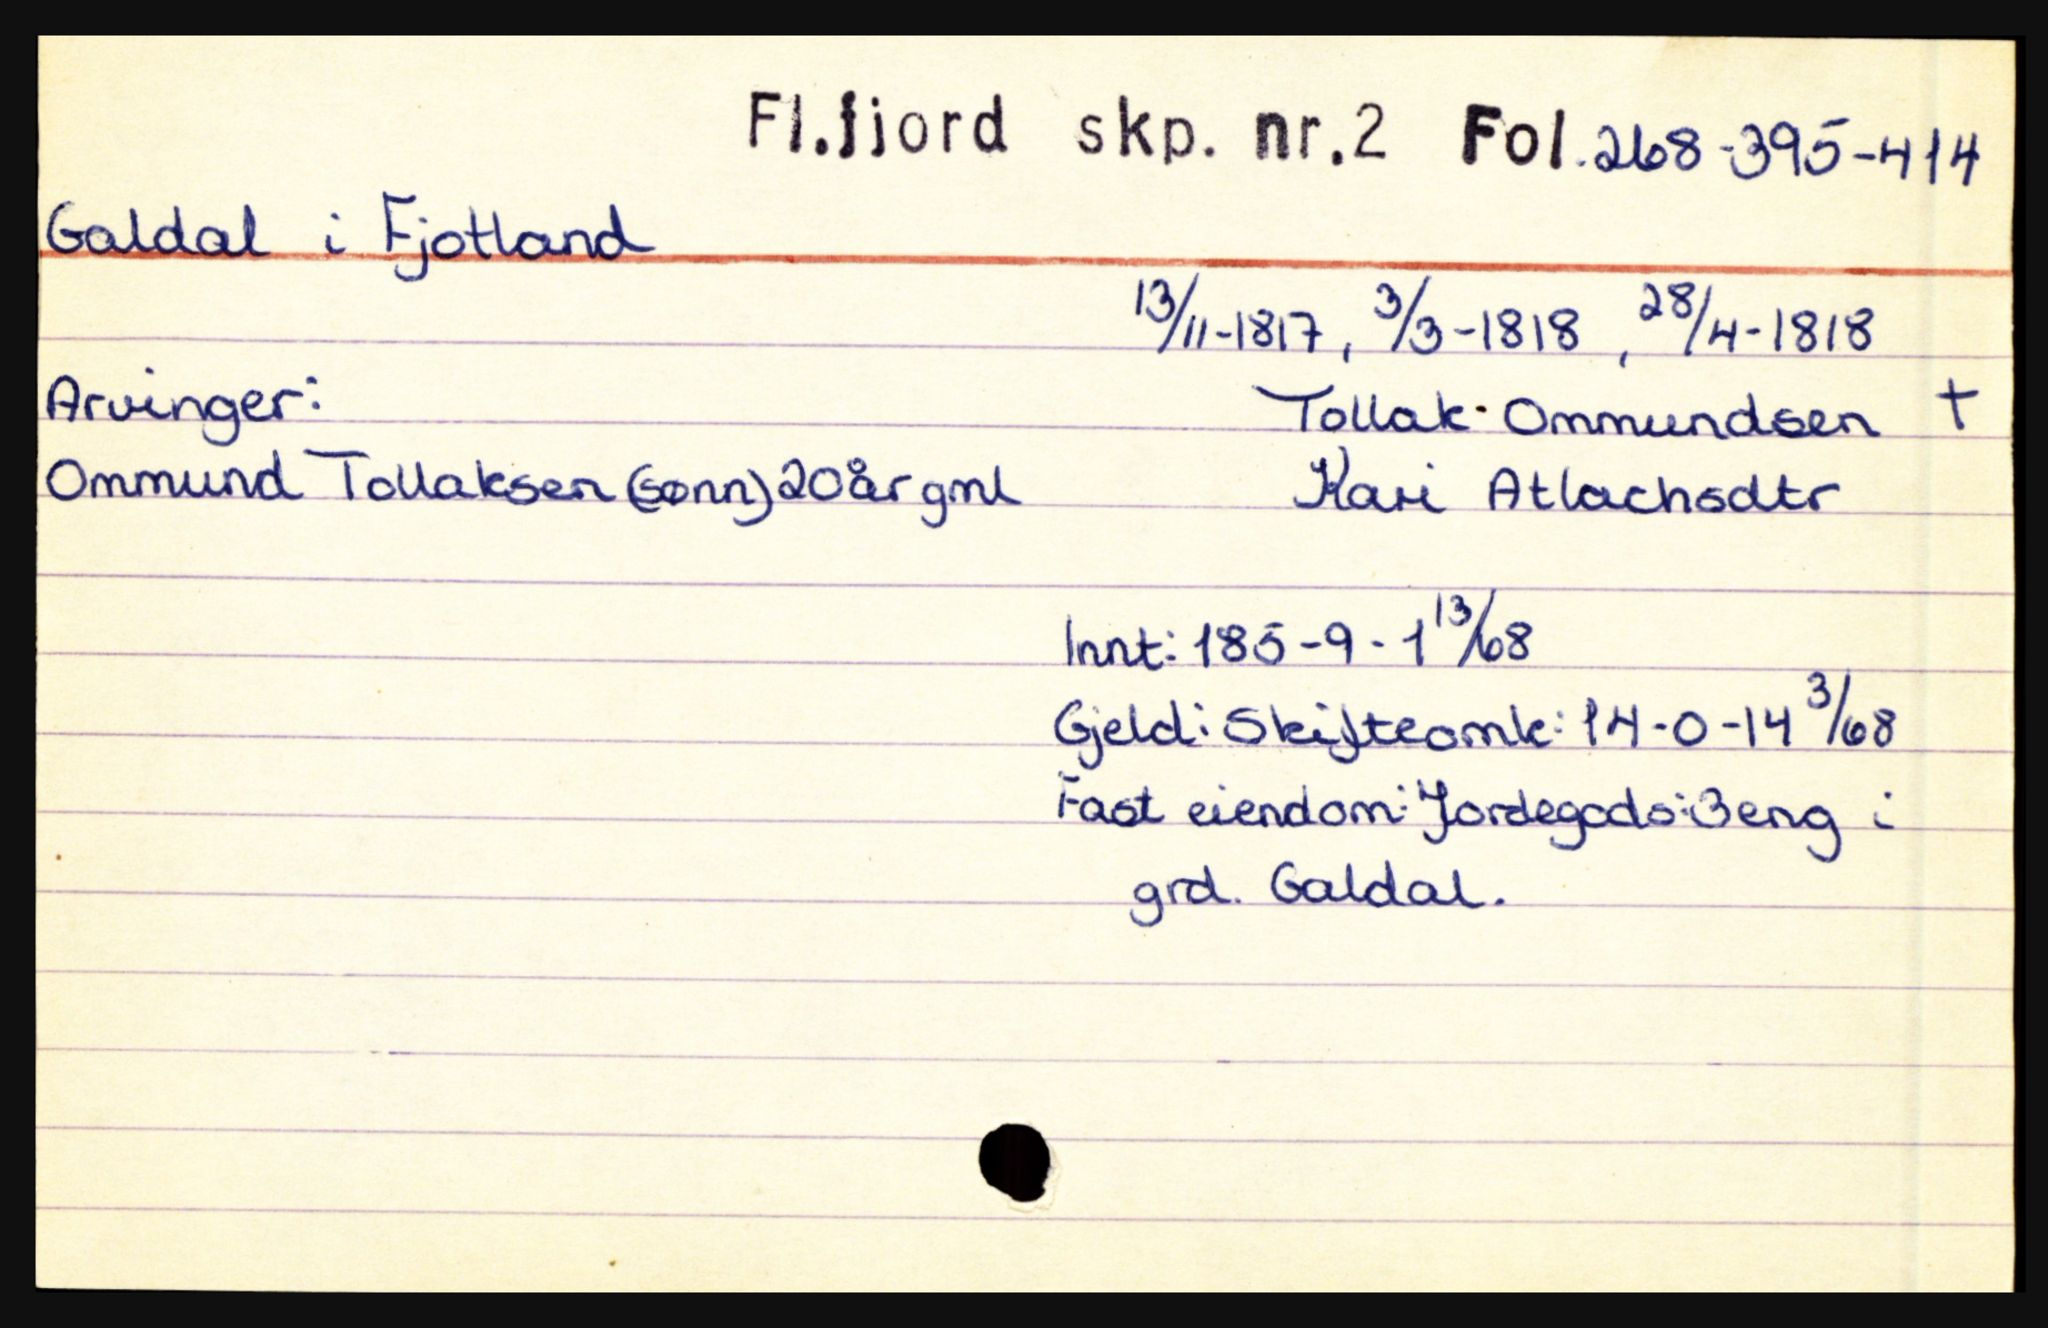 Fl.fjord skp. nr.2 Fol. 268-395-414
Galdal i Fjotland
13/11-1817, 3/3-1818, 28/4-1818
Arvinger:
Tollak Ommundsen †
Ommund Tollaksen (sønn) 20 år gml
Kari Atlachsdtr
Innt: 185-9-1 13/68
Gjeld: Skifteomk: 14-0-14 3/68
Fast eiendom: Jordegods: 3 eng i
grd. Galdal.